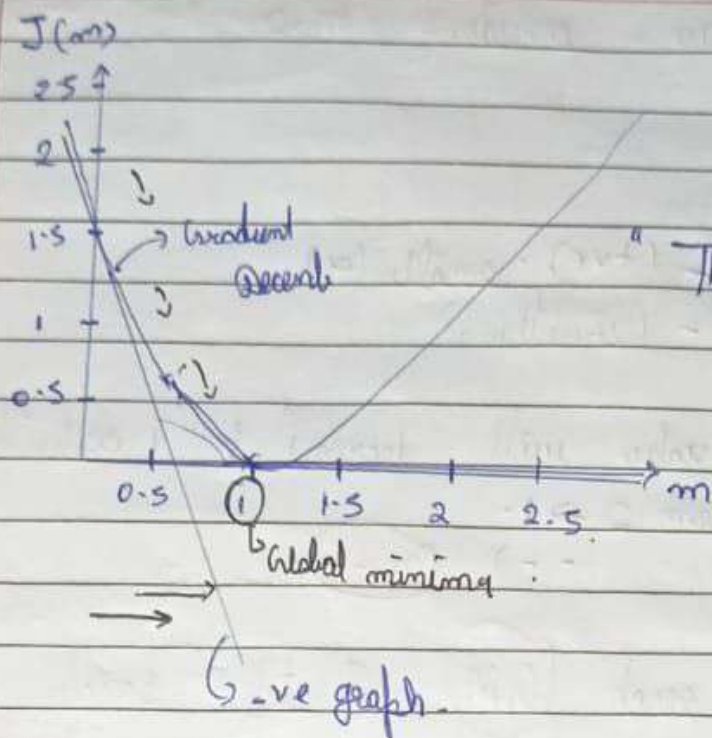 J(m)
2.5
2
1.5
Gradient
Decent
"
1
0.5
0.5
1
1.5
2
2.5
m
Global minima
-ve graph.